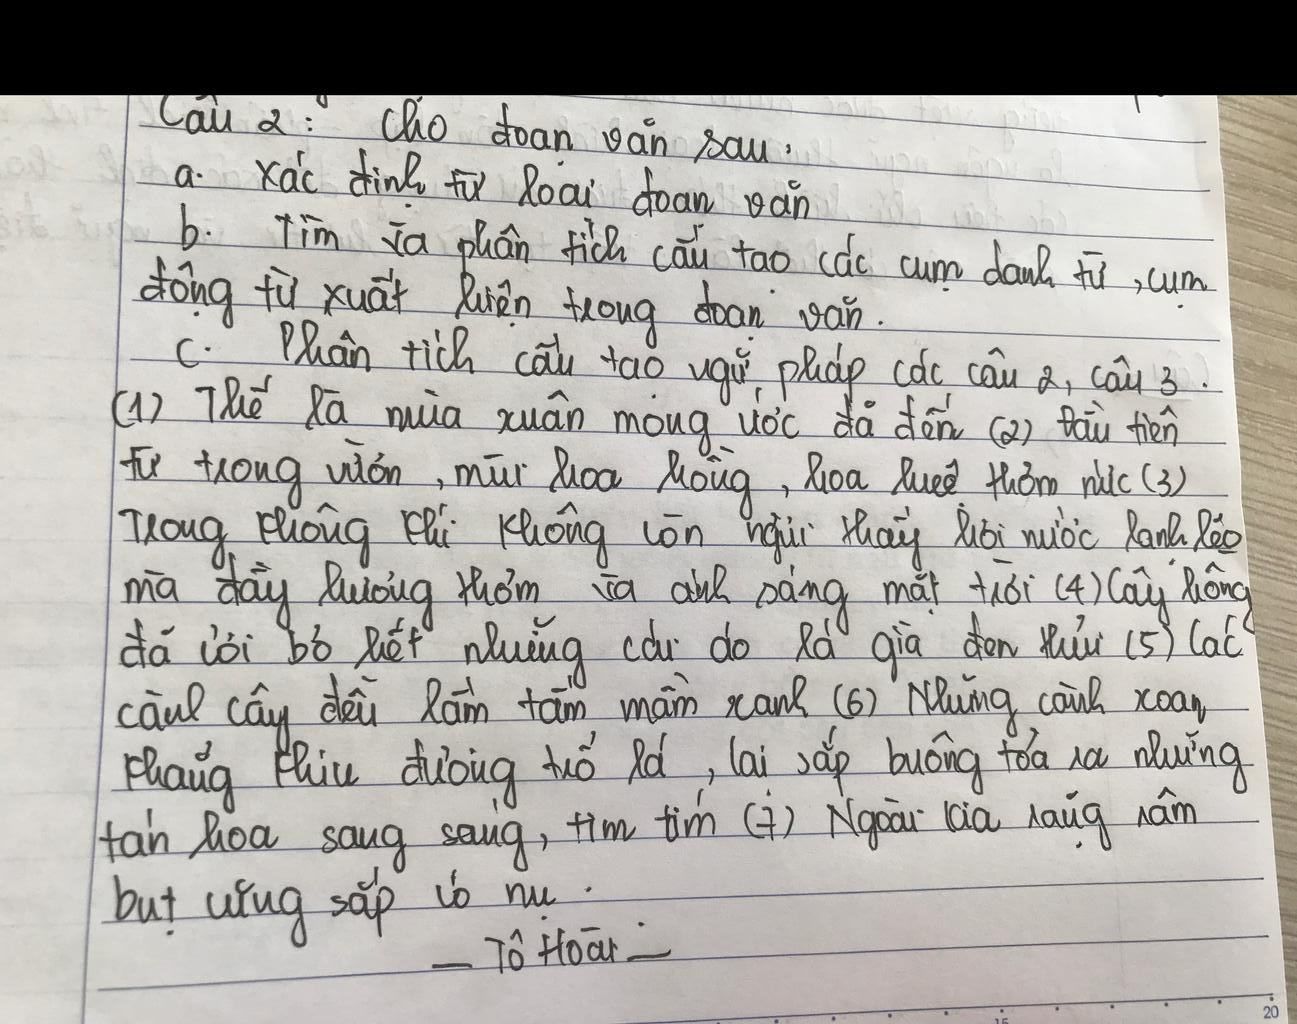 Câu 2: Cho đoạn văn sau.
a. Xác định từ loại đoạn văn
b. Tìm và phân tích cấu tạo các cụm danh từ, cụm
động từ xuất hiện trong đoạn văn.
c. Phân tích cấu tạo ngữ pháp các câu 2, câu 3.
(1) Thế là mùa xuân mong ước đã đến (2) Đầu tiên
từ trong vườn, mùi hoa hồng, hoa huệ thơm nức (3)
Trong không khí không còn ngửi thấy hơi nước lạnh lẽo
mà đầy hương thơm và ánh sáng mặt trời (4) Cây hồng
đã cởi bỏ hết những cái áo lá già đen thủi (5) Các
cành cây đều lấm tấm mầm xanh (6) Những cành xoan
khẳng khiu đương trổ lá, lại sắp buông tỏa ra những
tán hoa sang sáng, tim tím (7) Ngoài kia rặng râm
bụt cũng sắp có nụ.
— Tô Hoài —
15
20